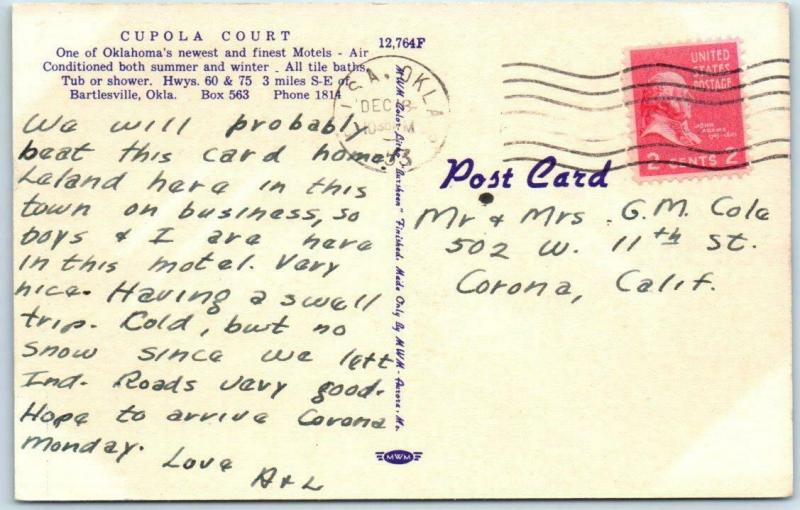 CUPOLA COURT
One of Oklahoma's newest and finest Motels - Air
Conditioned both summer and winter - All tile baths,
Tub or shower. Hwys. 60 & 75 3 miles S-E of
Bartlesville, Okla. Box 563 Phone 1814
12,764F
We will probably
beat this card home.
Leland here in this
town on business, so
boys & I are here
in this motel. Very
nice. Having a swell
trip. Cold, but no
snow since we left
Ind. Roads very good.
Hope to arrive Corona
Monday.
Love
A & L
MWM Color-Litho "Finished. Made Only By MWM - Aurora, Mo.
MWM
OKLA
DEC
53
UNITED
STATES
POSTAGE
JOHN
ADAMS
2 CENTS 2
Post Card
Mr & Mrs. G.M. Cole
502 W. 11th St.
Corona, Calif.